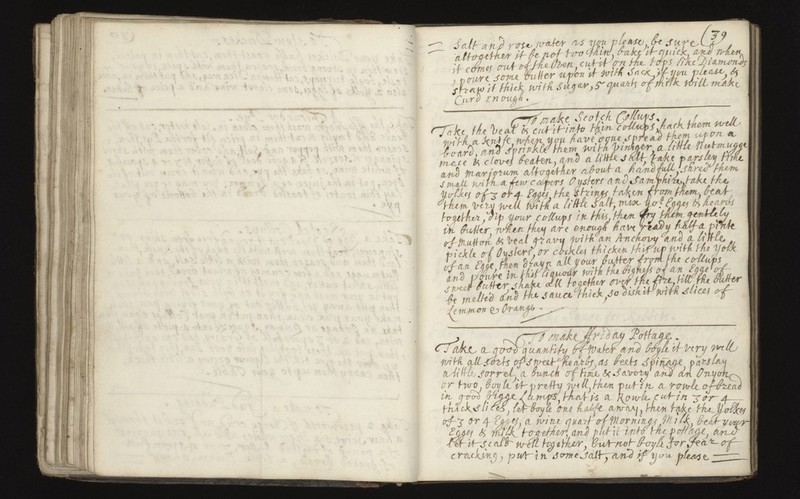 (39
Salt and rose water as you please, be sure
altogether it be not too thin, bake it quick, and when
it comes out of the Oven, cut it on the tops like Diamonds
poure some butter upon it with Sack, if you please, &
straw it thick with Sugar, 5 quarts of milk will make
Curd enough.
To make Scotch Collups.
Take the Veal & cut it into thin Collups, hack them well
with a knife, when you have done spread them upon a
board, and sprinkle them with viniger, a little Nutmugge
mace & cloves beaten, and a little salt, take parsley time
and marjorum altogether about a handfull, shred them
small with a few capers Oysters and Samphire, take the
Yolkes of 3 or 4 Egges, the Strings taken from them, beat
them very well with a little Salt, mix yor Egges & hearbs
together, dip your collups in this, then fry them gentlely
in butter, when they are enough have ready half a pinte
of mutton & veal gravy with an Anchovy and a little
pickle of Oysters, or cockles thicken this up with the Yolk
of an Egge, then drayn all your butter from the collups
and poure in this liquour with the bigness of an Egge of
sweet Butter, shake all together over the fire, till the Butter
be melted and the sauce thick, so dish it with slices of
Lemmon & Orange.
To make Friday Pottage.
Take a good quantity of water and boyle it very well
with all sorts of sweet hearbs, as beets Spinage parslay
a little sorrel, a bunch of time & Savory and an Onyon
or two, boyle it pretty well, then put in a rowle of bread
in good bigge Lumps, that is a Rowle cut in 3 or 4
thick slices, let boyle one halfe away, then take the Yolkes
of 3 or 4 Egges, a wine quart of Mornings Milk, beat your
Egges & milk together, and put it into the pottage, and
let it scald well together, but not boyle for fear of
cracking, put in some salt, and if you please